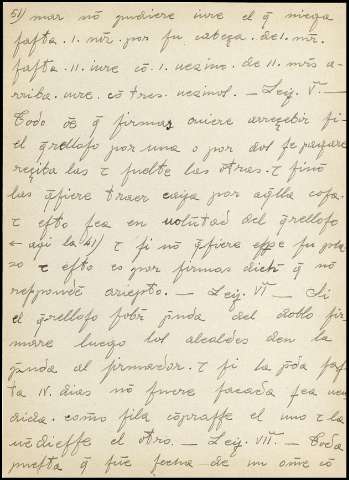 51) mar nō pudiere iure el q̄ niega
fafta .I. mr̄. por fu cabeça. de .I. mr̄.
fafta .II. iure cō .I. uezino. de .II. mr̄s a-
rriba. iure. cō tres. uezinos. — Leȳ. V. —
Todo oē q̄ firmas quiere arreçebir fi
el q̄rellofo por una o por dos fe pagare
reçiba las τ fuelte las otras. τ fi nō
las q̄fiere traer caya por aq̄lla cofa.
τ efto fea en uolūtad del q̄rellofo
← aqi la 41) τ fi nō q̄fiere fu
τ efto es por firmas dichō q̄ nō
refpondē ariepto. — Leȳ. VI — Si
el q̄rellofo fobr̄ p̄nda del doblo fir-
mare luego los alcaldes den la
p̄nda al firmador. τ fi la p̄da faf-
ta IV. dias nō fuere facada fea uen
dida. como fi la cōpraffe el uno τ la
uēdieffe el otro. — Leȳ. VII. — Toda
puefta q̄ fūe fecha de un ome cō